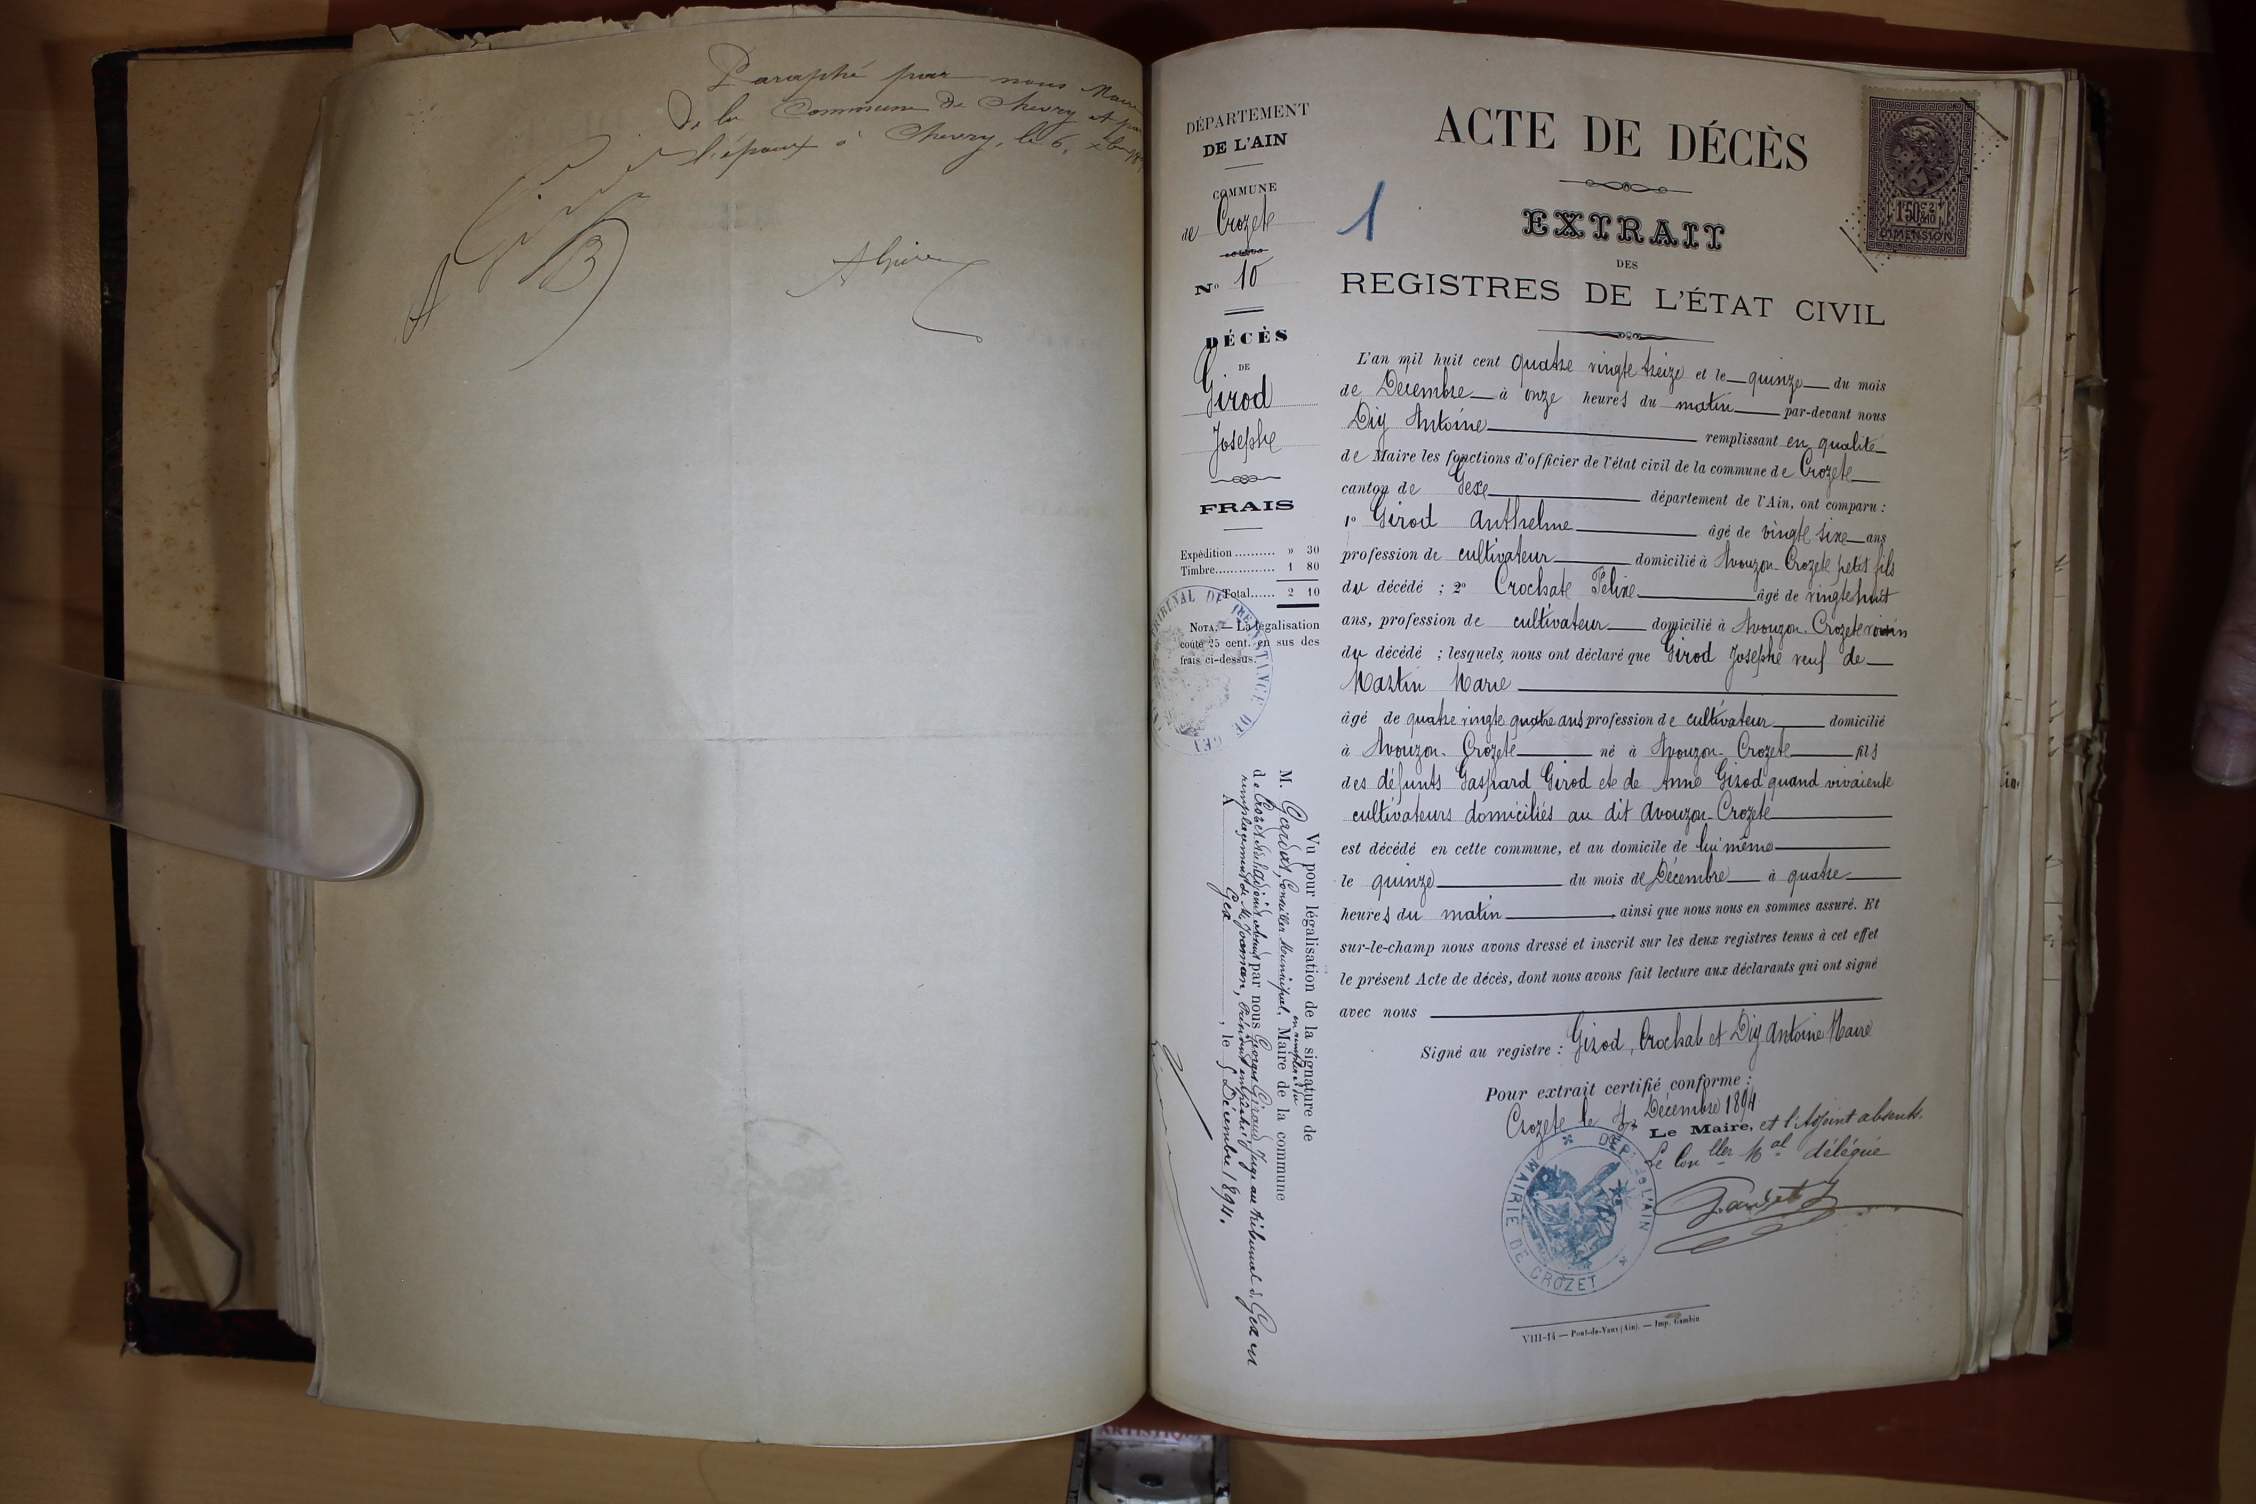 Paraphé par nous Maire
de la Commune de Chevry et par
l'époux à Chevry, le 6, xbre
DÉPARTEMENT
DE L'AIN
COMMUNE
de Crozete
No 10
DÉCÈS
DE
Girod
Josephe
FRAIS
Expédition .......... » 30
Timbre............... 1 80
Total...... 2 10
NOTA. — La légalisation
coûte 25 cent. en sus des
frais ci-dessus.
TRIBUNAL DE 1ERE INSTANCE DE GEX
Vu pour légalisation de la signature de
M. Gardet, Conseiller Municipal, en remplact du Maire de la commune
de Crozet et l'adjoint absents par nous Georges Giraud, Juge au tribunal de Gex en
remplacement de M. le Président empêché
A Gex, le 5 Décembre 1894.
ACTE DE DÉCÈS
1
EXTRAIT
DES
REGISTRES DE L'ÉTAT CIVIL
1F50C 2/10
DIMENSION
L'an mil huit cent quatre vingte treize et le quinze du mois
de Decembre à onze heures du matin par-devant nous
Dig Antoine remplissant en qualité
de Maire les fonctions d'officier de l'état civil de la commune de Crozete
canton de Gexe département de l'Ain, ont comparu :
1o Girod Anthelme âgé de vingte sixe ans
profession de cultivateur domicilié à Avouzon-Crozete petit fils
du décédé ; 2o Crochate Felixe âgé de vingtehuit
ans, profession de cultivateur domicilié à Avouzon-Crozete voisin
du décédé ; lesquels nous ont déclaré que Girod Josephe veuf de
Martin Marie
âgé de quatre vingte quatre ans profession de cultivateur domicilié
à Avouzon-Crozete né à Avouzon-Crozete fils
des défunts Gaspard Girod ete de Anne Girod quand vivaiente
cultivateurs domiciliés au dit Avouzon-Crozete
est décédé en cette commune, et au domicile de lui même
le quinze du mois de Décembre à quatre
heures du matin ainsi que nous nous en sommes assuré. Et
sur-le-champ nous avons dressé et inscrit sur les deux registres tenus à cet effet
le présent Acte de décès, dont nous avons fait lecture aux déclarants qui ont signé
avec nous
Signé au registre : Girod, Crochat et Dig Antoine Maire
Pour extrait certifié conforme :
Crozete le 4 Décembre 1894
Le Maire, et l'Adjoint absents.
Le Conller Mal délégué
DÉPT DE L'AIN
MAIRIE DE CROZET
VIII-14 — Pont-de-Vaux (Ain). — Imp. Gambin